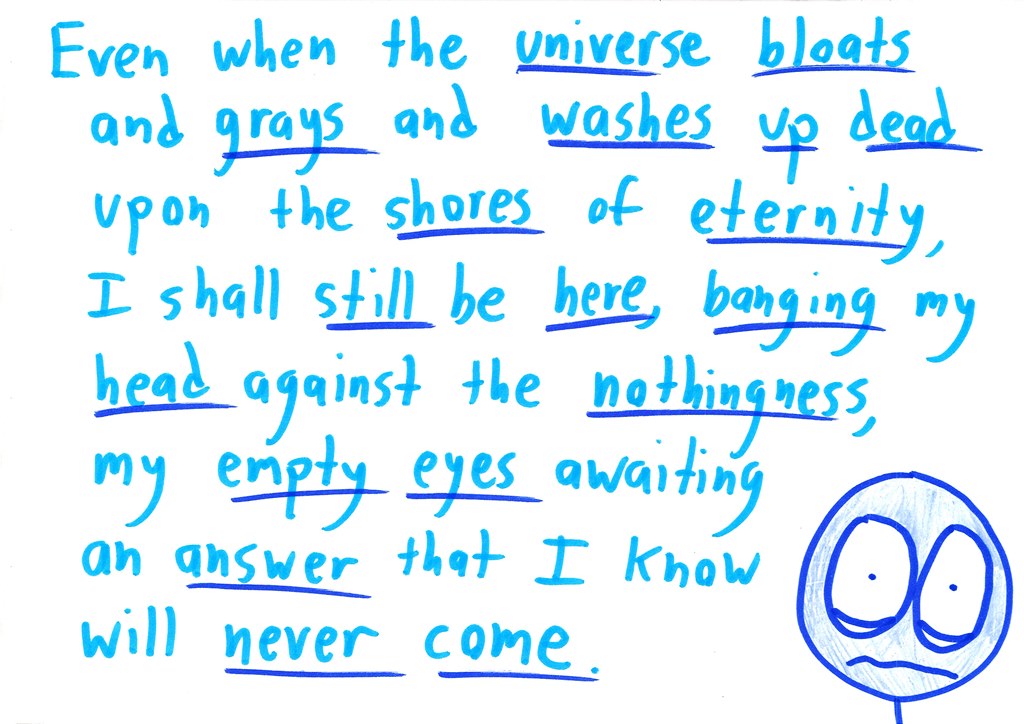 Even when the universe bloats
and grays and washes up dead
upon the shores of eternity,
I shall still be here, banging my
head against the nothingness,
my empty eyes awaiting
an answer that I know
will never come.